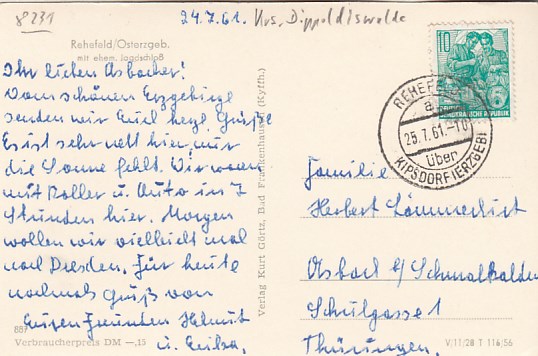 8231
24.7.61. Krs. Dippoldiswalde
Rehefeld/Osterzgeb.
mit ehem. Jagdschloß
Ihr lieben Asbacher!
Vom schönen Erzgebirge
senden wir Euch herzl. Grüße
Es ist sehr nett hier, nur
die Sonne fehlt. Wir waren
mit Roller u. Auto in 7
Stunden hier. Morgen
wollen wir vielleicht mal
nach Dresden. Für heute
nochmals Grüße von
Euren Freunden Helmut
u.
Verbraucherpreis DM —,15
Verlag Kurt Görtz, Bad Frankenhausen (Kyffh.)
10
6
DEUTSCHE DEMOKRATISCHE REPUBLIK
25.7.61.-10
über
KIPSDORF (ERZGEB)
Familie
Herbert
Asbach b/ Schmalkalden
Schulgasse 1
Thüringen.
V/11/28 T 116/56